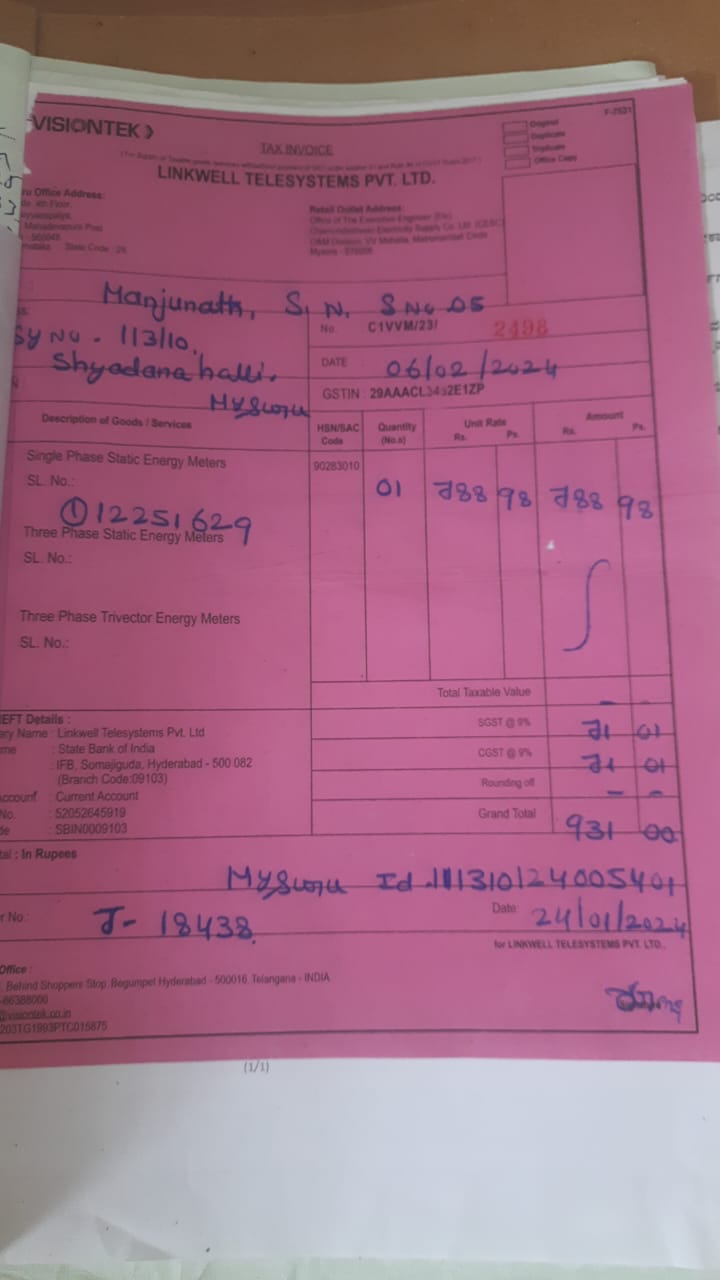 VISIONTEK
F-7531
TAX INVOICE
Original
Duplicate
Triplicate
Office Copy
LINKWELL TELESYSTEMS PVT. LTD.
ru Office Address:
4th Floor,
Mahadevapura Post
State Code : 29
Retail Outlet Address:
Office of The Executive Engineer (Ele)
Manjunath, S. N. S No 05
No. C1VVM/23/ 2498
Sy No. 113/10,
DATE 06/02/2024
Shyadanahalli,
GSTIN : 29AAACL3452E1ZP
Mysuru
Description of Goods / Services
HSN/SAC Code
Quantity (No.s)
Unit Rate
Rs. Ps.
Amount
Rs. Ps.
Single Phase Static Energy Meters
90283010
SL. No.:
01 788 98 788 98
① 12251629
Three Phase Static Energy Meters
SL. No.:
Three Phase Trivector Energy Meters
SL. No.:
Total Taxable Value
EFT Details :
SGST @ 9% 71 01
ary Name : Linkwell Telesystems Pvt. Ltd
me : State Bank of India
CGST @ 9% 71 01
: IFB, Somajiguda, Hyderabad - 500 082
(Branch Code:09103)
Rounding off - -
Account : Current Account
No. : 52052645919
Grand Total 931 00
de : SBIN0009103
tal : In Rupees
Mysuru Id
r No.: J- 18438
Date: 24/01/2024
for LINKWELL TELESYSTEMS PVT. LTD.,
Office :
, Behind Shoppers Stop, Begumpet Hyderabad - 500016, Telangana - INDIA
-66388000
@visiontek.co.in
203TG1993PTC015875
(1/1)